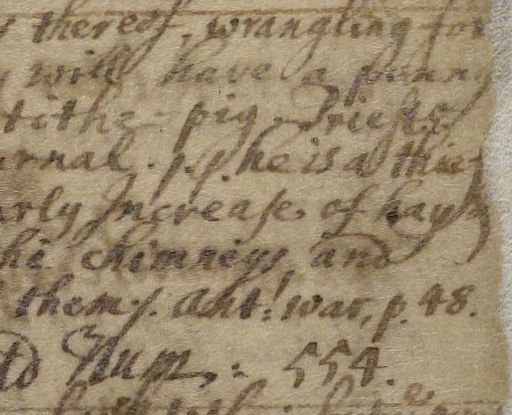 thereof, wrangling for
will have a penny
tithe = pig. Priests
urnal. p. 9. he is a thief
arly Increase, of hay
chimneys and
them/. Ant: war, p. 48.
Num. : 554.